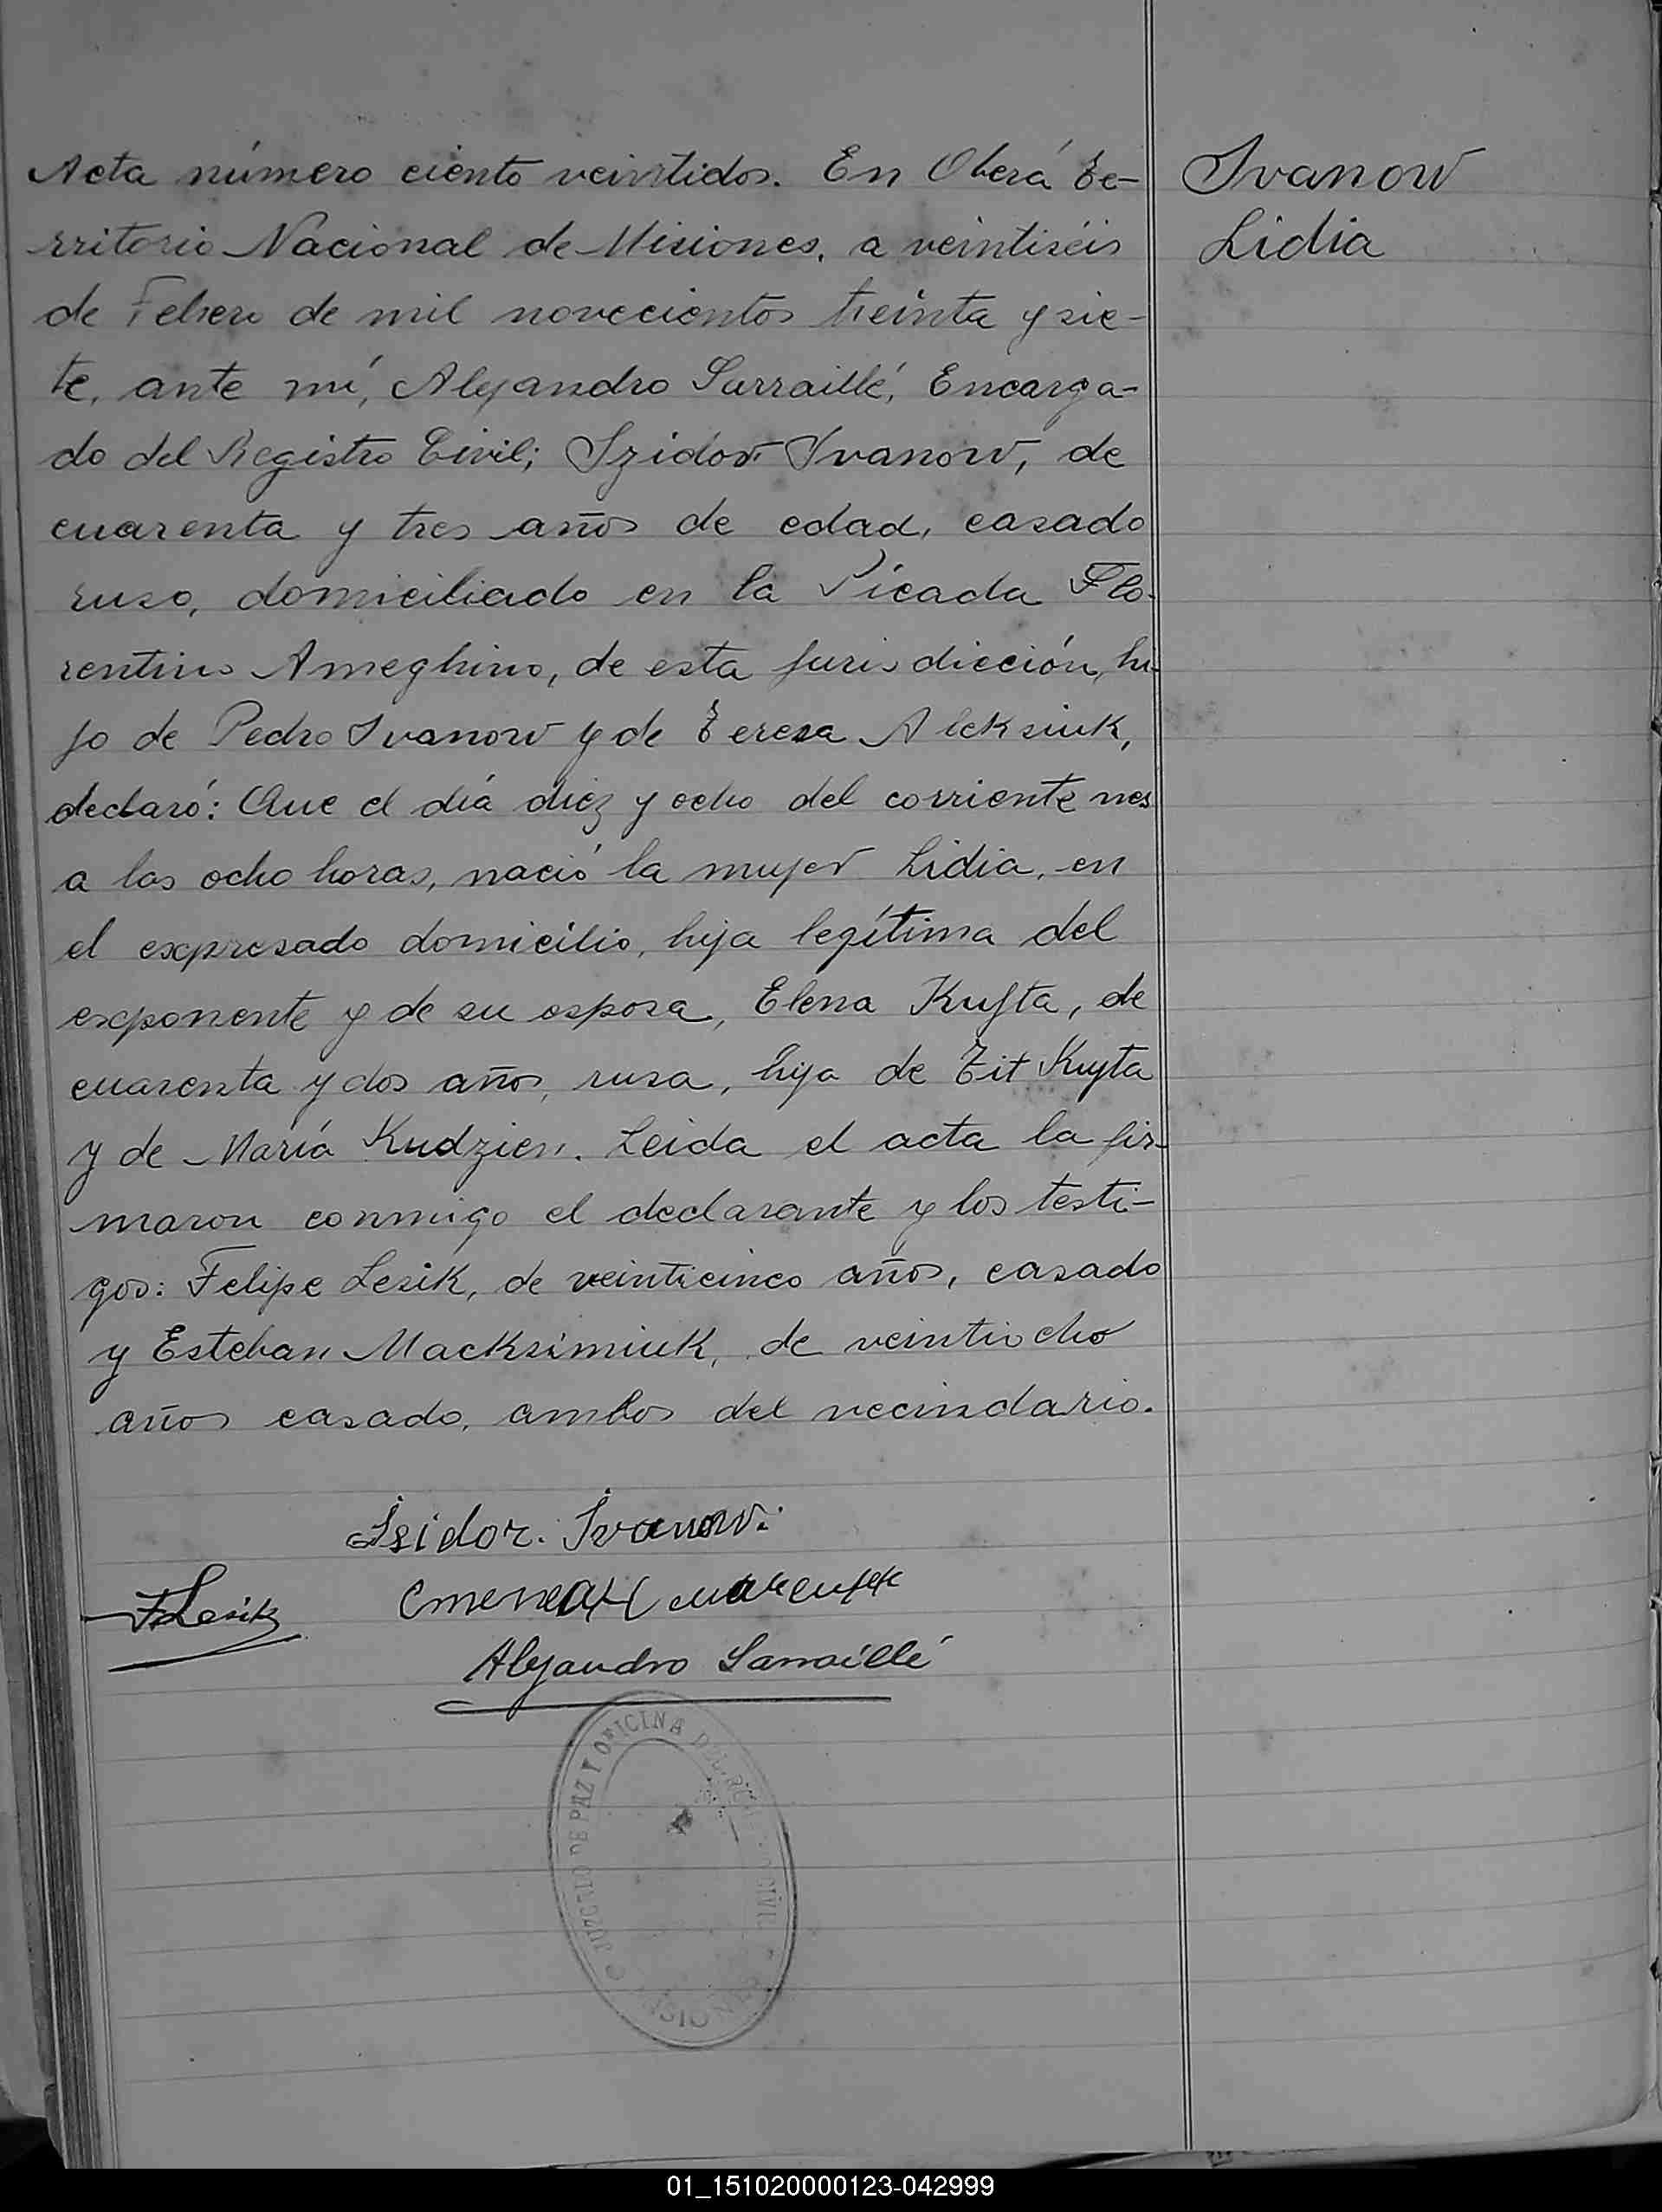 Acta número ciento veintidos. En Oberá Te-
rritorio Nacional de Misiones, a veintiséis
de Febrero de mil novecientos treinta y sie-
te, ante mí, Alejandro Sarraillé, Encarga-
do del Registro Civil; Izidor Ivanow, de
cuarenta y tres años de edad, casado
ruso, domiciliado en la Picada Flo-
rentino Ameghino, de esta jurisdicción, hi-
jo de Pedro Ivanow y de Teresa Aleksiuk,
declaró: Que el día diez y ocho del corriente mes
a las ocho horas, nació la mujer Lidia, en
el expresado domicilio, hija legítima del
exponente y de su esposa, Elena Kufta, de
cuarenta y dos años, rusa, hija de Tit
y de María Kudzien. Leida el acta la fir-
maron conmigo el declarante y los testi-
gos: Felipe Lesik, de veinticinco años, casado
y Esteban Macksimiuk, de veintiocho
años casado, ambos del vecindario.
Izidor. Ivanow.
FLesik
Alejandro Sarraillé
JUZGADO DE PAZ Y OFICINA DEL REG. CIVIL
MISIONES
Ivanow
Lidia
01_151020000123-042999